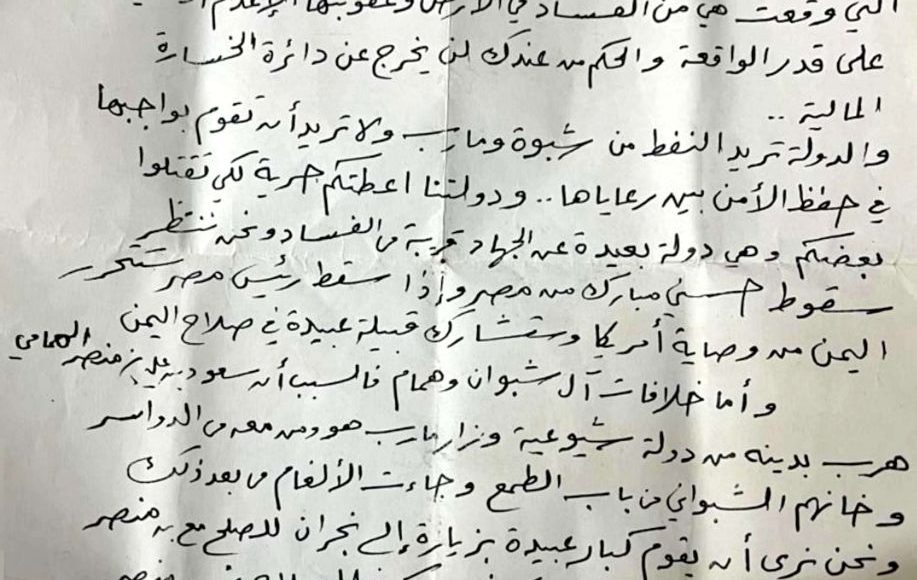 التي وقعت هي من الفساد في الأرض وعقوبتها الإعدام
على قدر الواقعة والحكم من عندك لن يخرج عن دائرة الخسارة
المالية ..
والدولة تريد النفط من شبوة ومارب ولا تريد أن تقوم بواجبها
في حفظ الأمن بين رعاياها .. ودولتنا اعطتكم حرية لكي تقتلوا
بعضكم وهي دولة بعيدة عن الجهاد قريبة من الفساد ونحن ننتظر
سقوط حسني مبارك من مصر وإذا سقط رئيس مصر ستتحرر
اليمن من وصاية أمريكا وستشارك قبيلة عبيدة في صلاح اليمن
وأما خلافات آل شبوان وهمام فالسبب أن سعود بن علي بن منصر الهمامي
هرب بدينه من دولة شيوعية وزار مارب هو ومن معه من الدواسر
وخانهم الشبواني من باب الطمع وجاءت الألغام من بعد ذلك
ونحن نرى أن يقوم كبار عبيدة بزيارة إلى نجران للصلح مع بن منصر